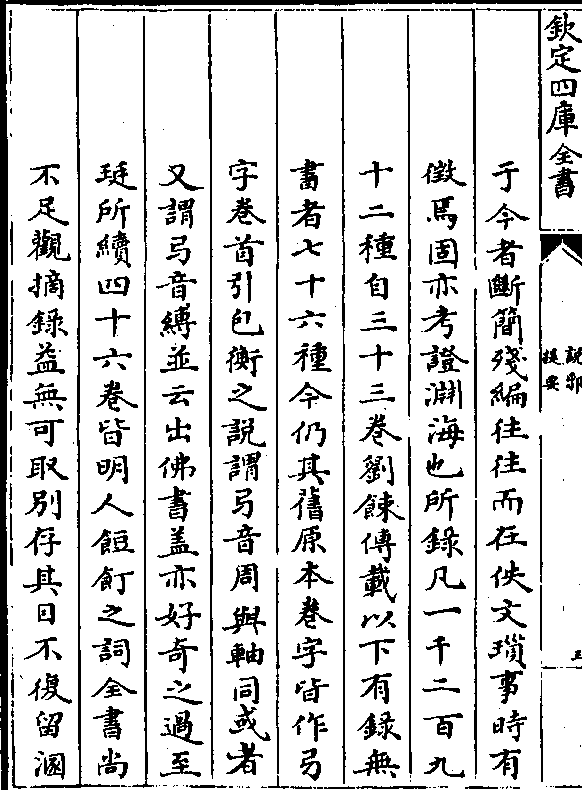 欽定四庫全書
說郛
提要
于今者斷簡殘編往往而在佚文瑣事時有
徵焉固亦考證淵海也所錄凡一千二百九
十二種自三十三卷劉餗傳載以下有錄無
書者七十六種今仍其舊原本卷字皆作弓
字卷首引包衡之說謂弓音周與軸同或者
又謂弓音縛並云出佛書盖亦好奇之過至
珽所續四十六卷皆明人餖飣之詞全書尚
不足觀摘錄益無可取别存其目不復留溷